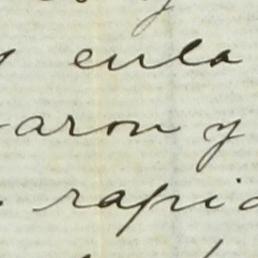 y enla
aron y
rapid